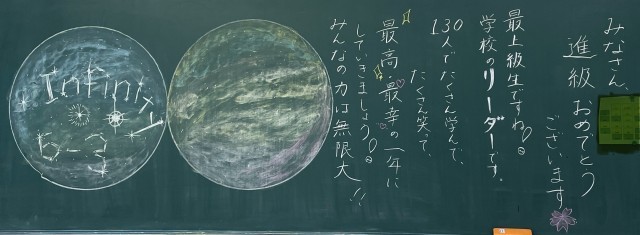 みなさん、
進級おめでとう
ございます
最上級生ですね。
学校のリーダーです。
130人でたくさん学んで、
たくさん笑って、
最高 最幸の一年に
していきましょう。
みんなの力は無限大!!
Infinity